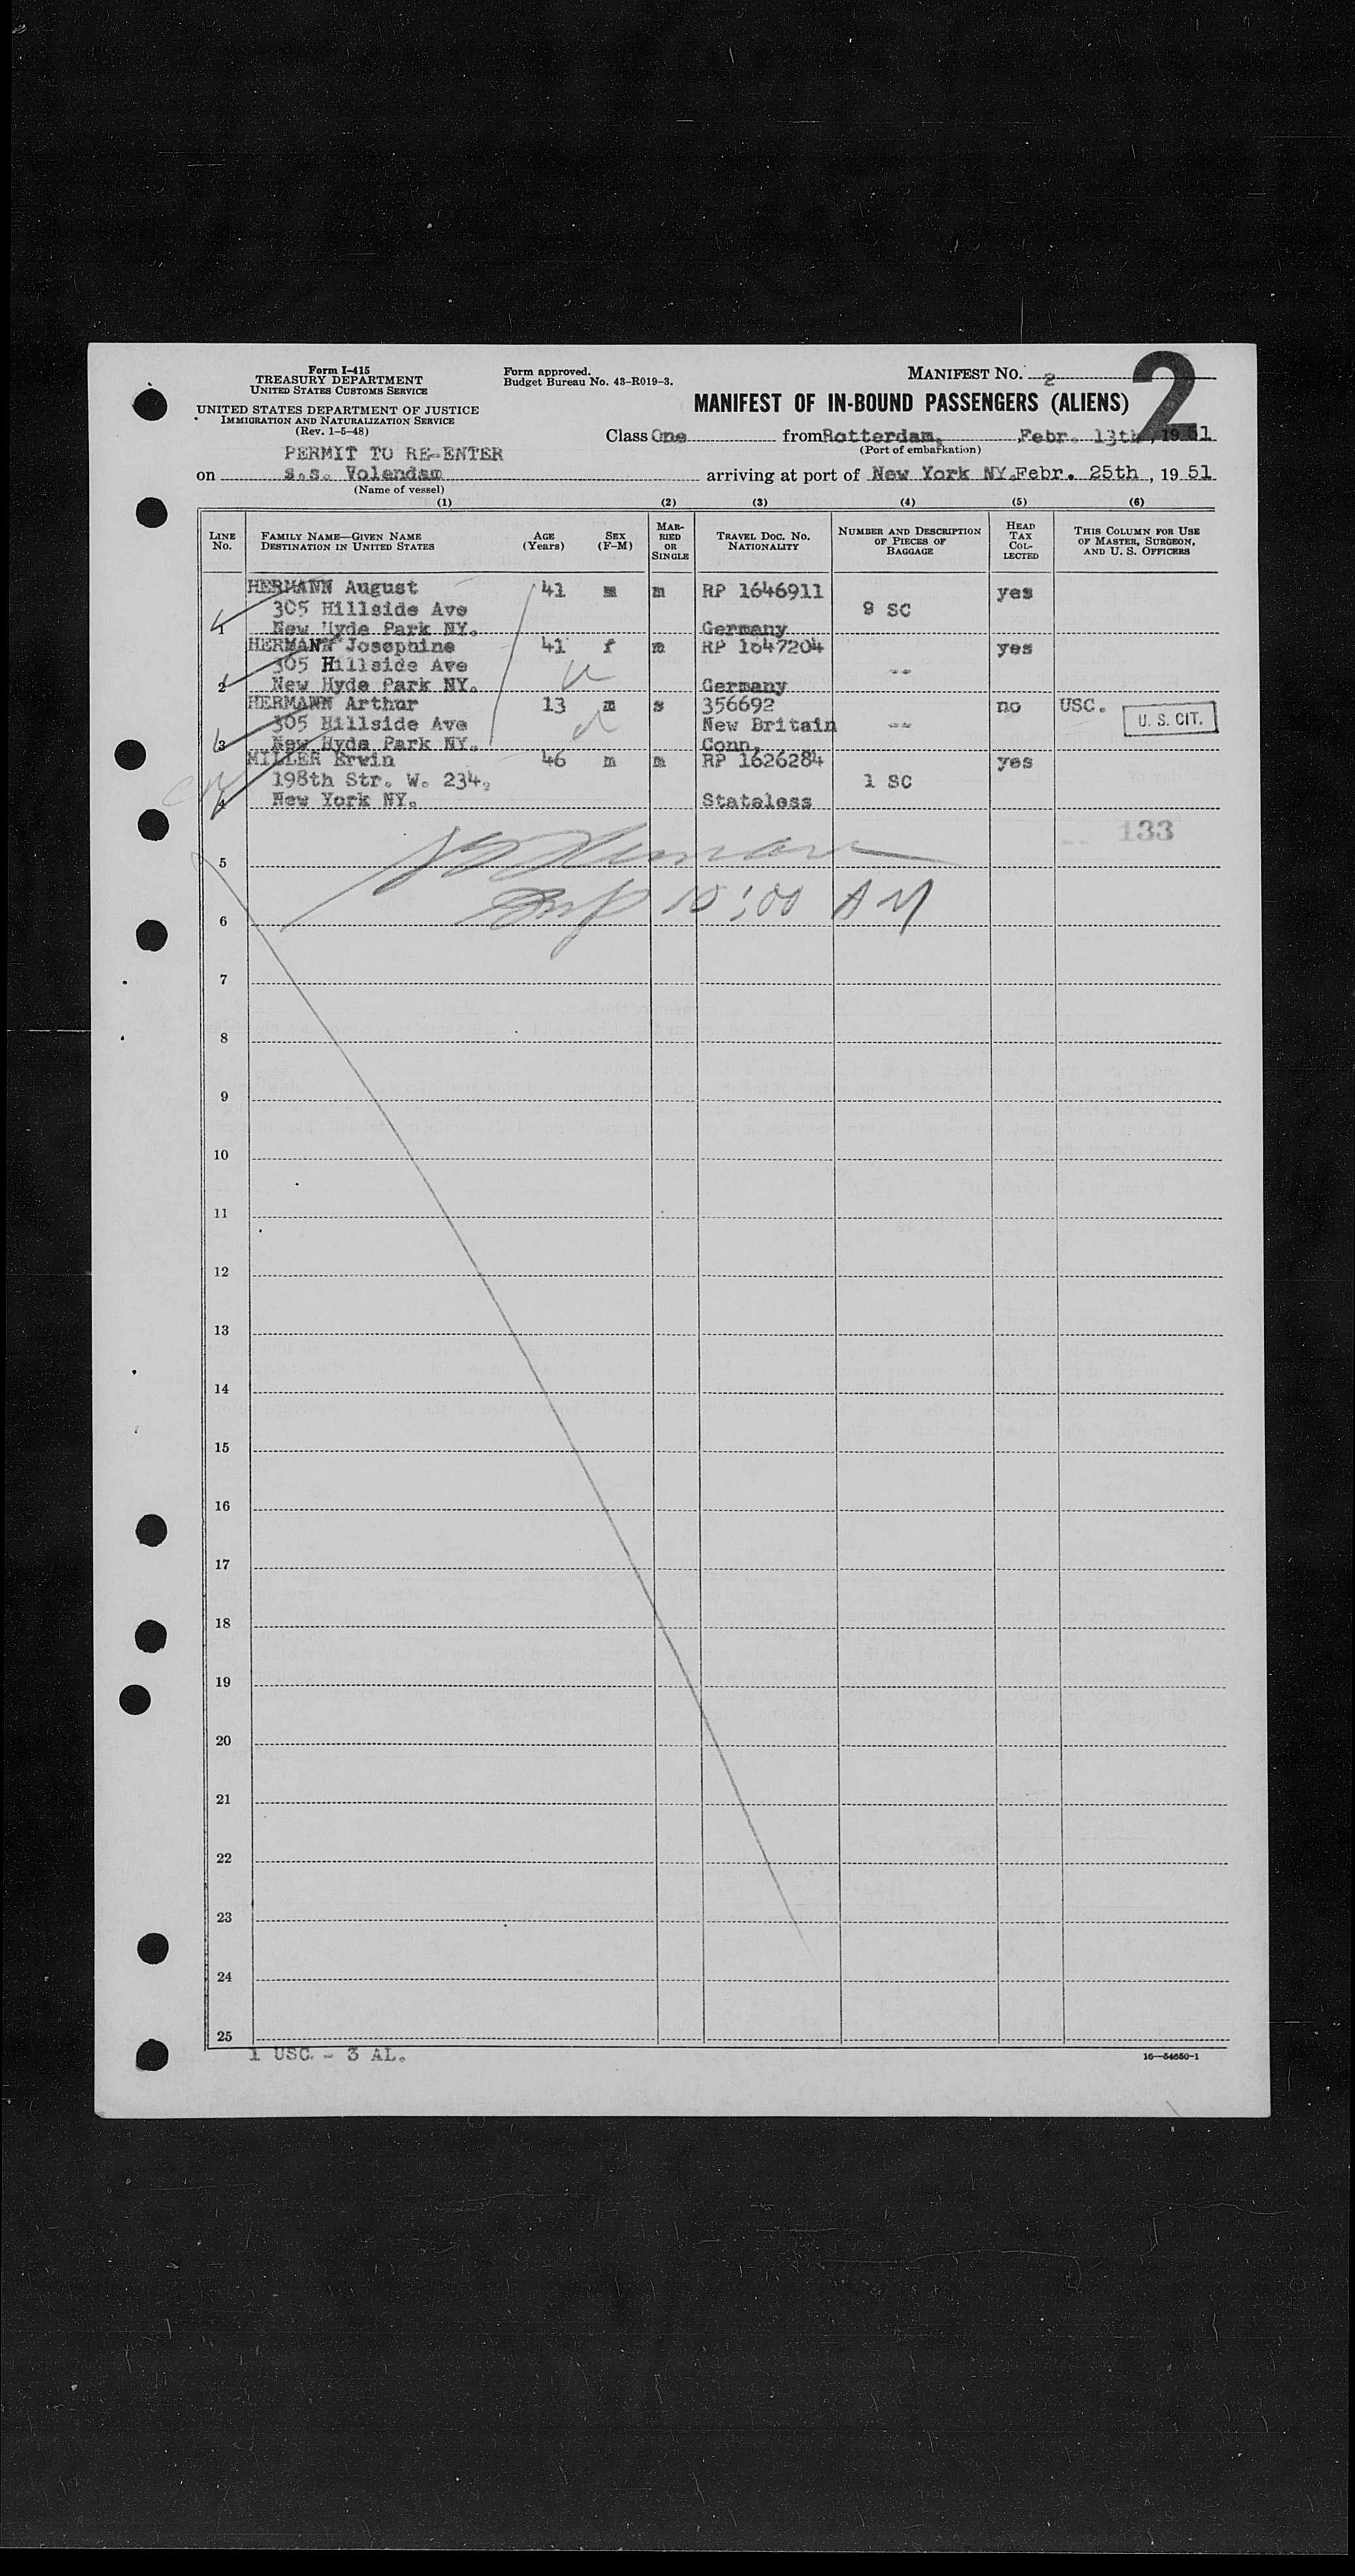 Form I-415
TREASURY DEPARTMENT
UNITED STATES CUSTOMS SERVICE
UNITED STATES DEPARTMENT OF JUSTICE
IMMIGRATION AND NATURALIZATION SERVICE
(Rev. 1-5-48)
Form approved.
Budget Bureau No. 43-R019-3.
MANIFEST NO. 2
2
MANIFEST OF IN-BOUND PASSENGERS (ALIENS)
Class One from Rotterdam, Febr. 13th, 1951
(Port of embarkation)
PERMIT TO RE-ENTER
on s.s. Volendam arriving at port of New York NY. Febr. 25th, 19 51
(Name of vessel)
(1) (2) (3) (4) (5) (6)
LINE NO. FAMILY NAME—GIVEN NAME DESTINATION IN UNITED STATES AGE (Years) SEX (F-M) MARRIED OR SINGLE TRAVEL DOC. NO. NATIONALITY NUMBER AND DESCRIPTION OF PIECES OF BAGGAGE HEAD TAX COLLECTED THIS COLUMN FOR USE OF MASTER, SURGEON, AND U. S. OFFICERS
HERMANN August 41 m m RP 1646911 yes
305 Hillside Ave 9 SC
1 New Hyde Park NY. Germany
HERMANN Josephine 41 f m RP 1647204 yes
305 Hillside Ave --
2 New Hyde Park NY. Germany
HERMANN Arthur 13 m s 356692 no USC.
305 Hillside Ave New Britain -- U. S. CIT.
3 New Hyde Park NY. Conn.
MILLER Erwin 46 m m RP 1626284 yes
198th Str. W. 234, 1 SC
4 New York NY. Stateless
133
5
Insp 10:00 AM
6
7
8
9
10
11
12
13
14
15
16
17
18
19
20
21
22
23
24
25
1 USC. - 3 AL.
16—54650-1